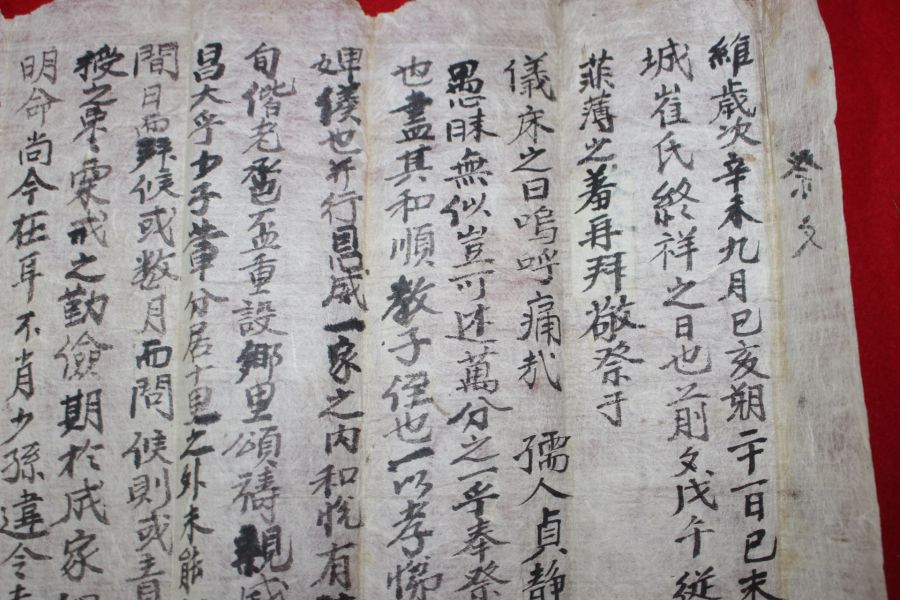 祭文
維歲次辛未九月己亥朔二十一日己未
城崔氏終祥之日也前夕戊午 從
菲薄之羞再拜敬祭于
儀床之日嗚呼痛哉 孺人貞靜
愚昧無似豈可述萬分之一乎奉祭
也盡其和順教子侄也一以孝悌
婢僕也并行恩威一家之內和悅有
旬偕老巹盃重設鄉里頌禱親戚
昌大乎少子輩分居十里之外未能
間日而拜候或数月而問候則或責
授之束粟戒之勤儉期於成家
明命尚今在耳不肖少孫違令